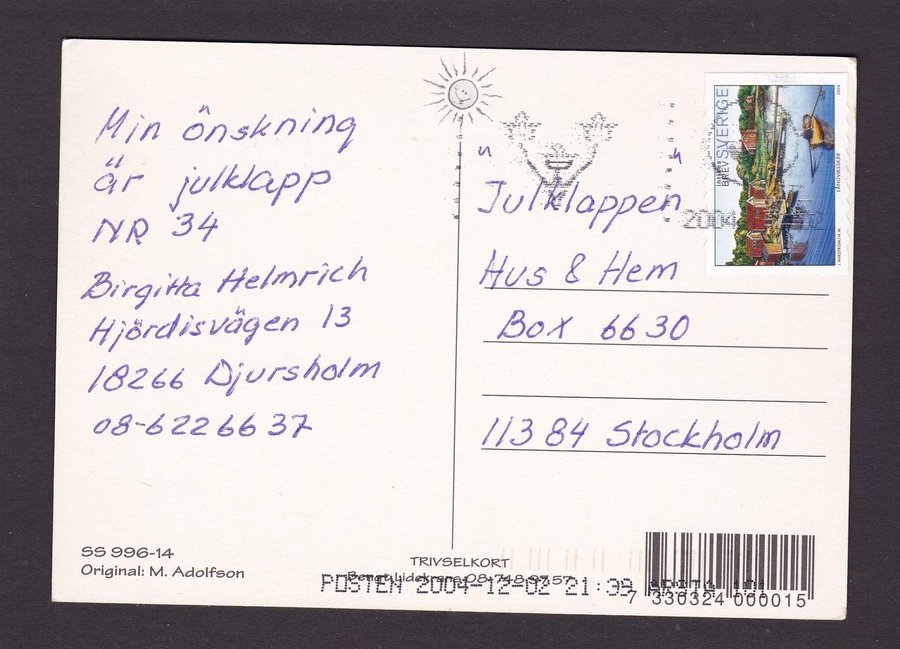 Min önskning
är julklapp
NR 34
Birgitta Helmrich
Hjördisvägen 13
18266 Djursholm
08-6226637
SS 996-14
Original: M. Adolfson
"Julklappen"
Hus & Hem
Box 6630
11384 Stockholm
BREV SVERIGE
LÅNGVIKSSKÄR
2004
TRIVSELKORT
Bengt Lidekrans 08-748 97 57
POSTEN 2004-12-02 21:39 ÅRSTA 101
7 330324 000015